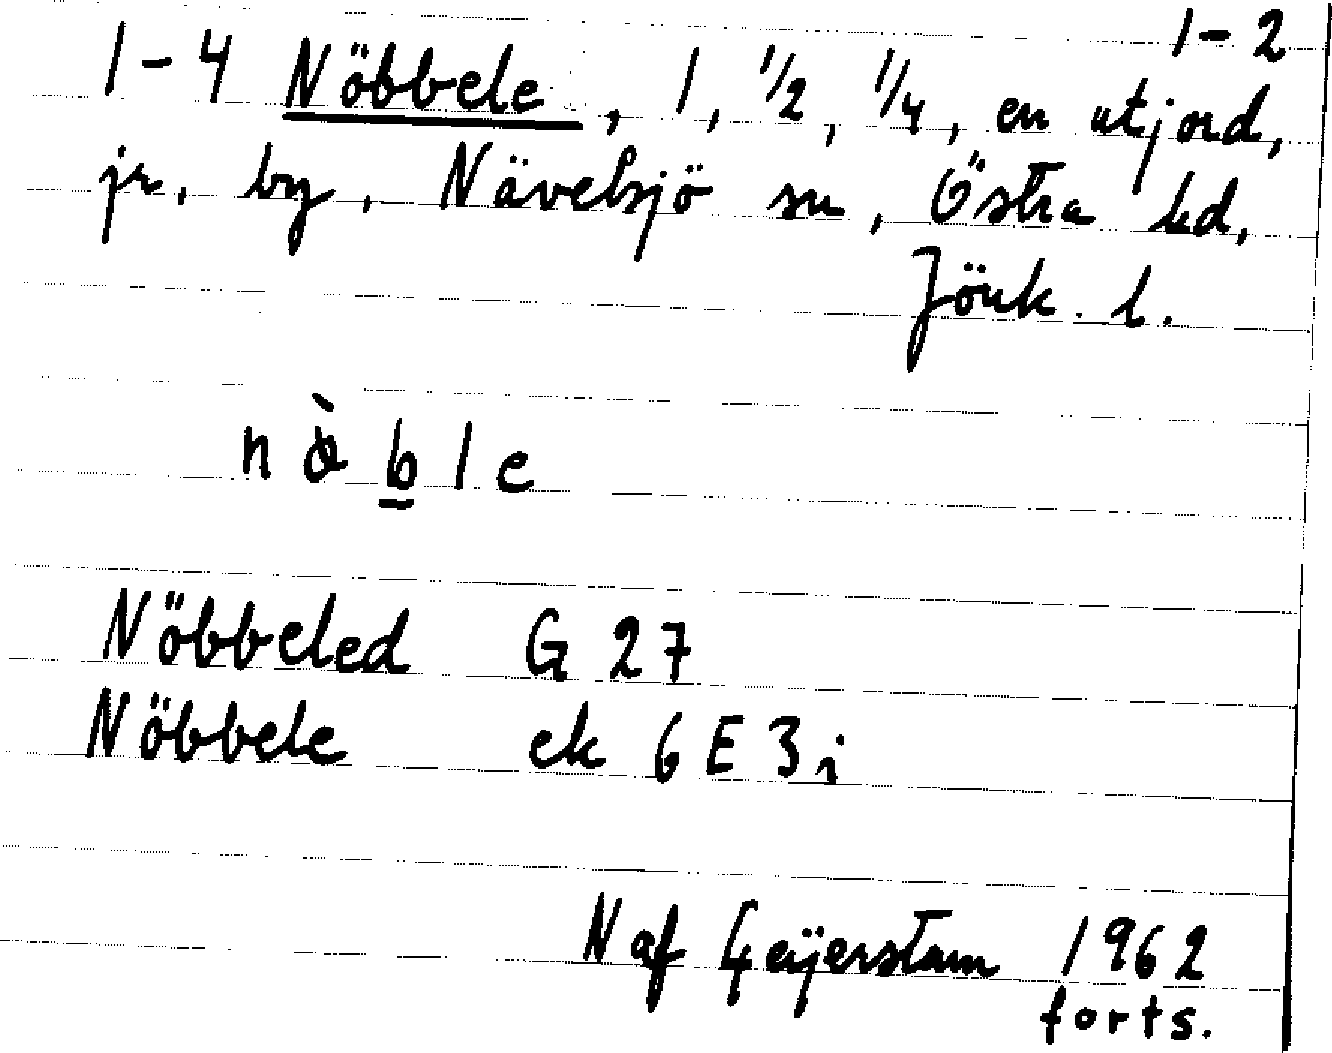 1-2
1-4 Nöbbele, 1, 1/2, 1/4, en utjord,
jr, by, Nävelsjö sn, Östra hd,
Jönk. l.
nòble
Nöbbeled G 27
Nöbbele ek 6 E 3 i
N af Geijerstam 1962
forts.